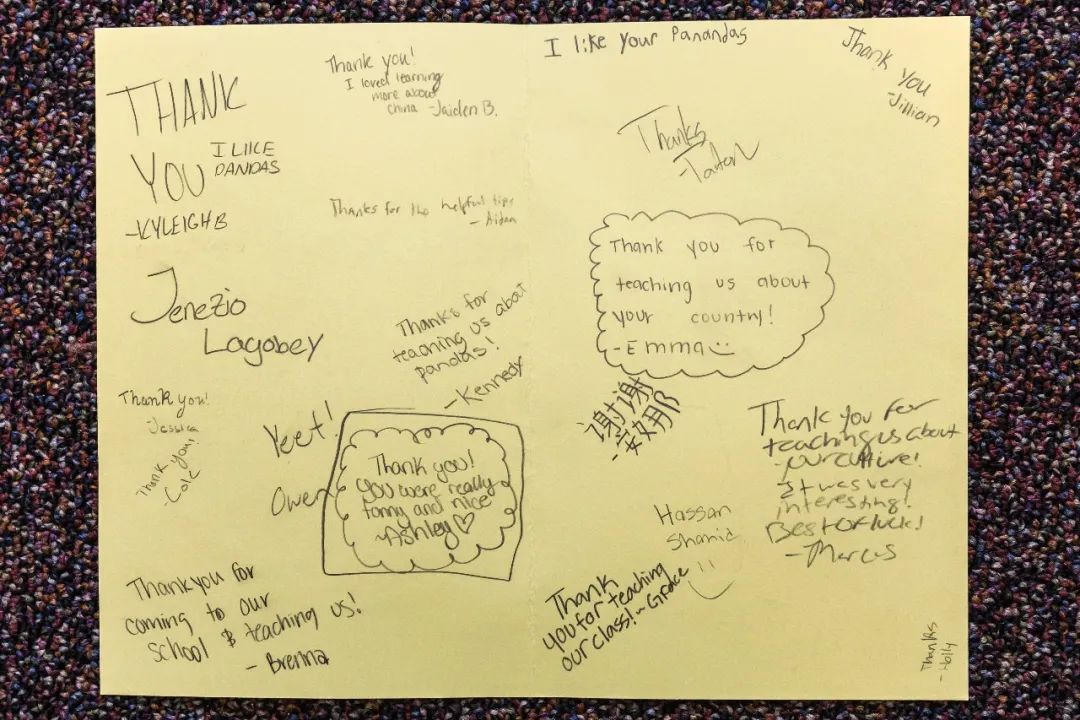 THANK
YOU
I LIIKE
PANDAS
-KYLEIGH B
Thank you!
I loved learning
more about
China -Jaiden B.
Thanks for the helpful tips
- Aidan
Jenezio
Lagobey
Thanks for
teaching us about
pandas!
-Kennedy
Thank you!
Jessica
Thank you!
-Cole
Yeet!
Owen
Thank you!
You were really
funny and nice
~Ashley♡
Thankyou for
coming to our
school & teaching us!
- Brenna
I like Your Panandas
Thank you
-Jillian
Thanks
Thank you for
teaching us about
your country!
-Emma
谢谢
-安娜
Thank you for
teaching us about
your culture!
It was very
interesting!
Best of luck!
-Marcus
Hassan
Thank
you for teaching
our class! ~Grace
Thanks
-Holly